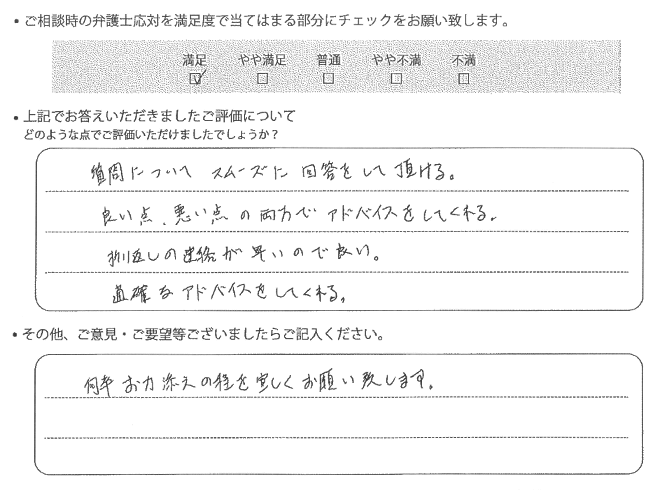 ・ご相談時の弁護士応対を満足度で当てはまる部分にチェックをお願い致します。
満足 やや満足 普通 やや不満 不満
☑ □ □ □ □
・上記でお答えいただきましたご評価について
どのような点でご評価いただけましたでしょうか？
質問について スムーズに 回答をして頂ける。
良い点、悪い点の両方でアドバイスをしてくれる。
折返しの連絡が早いので良い。
適確なアドバイスをしてくれる。
・その他、ご意見・ご要望等ございましたらご記入ください。
何卒お力添えの程を宜しくお願い致します。